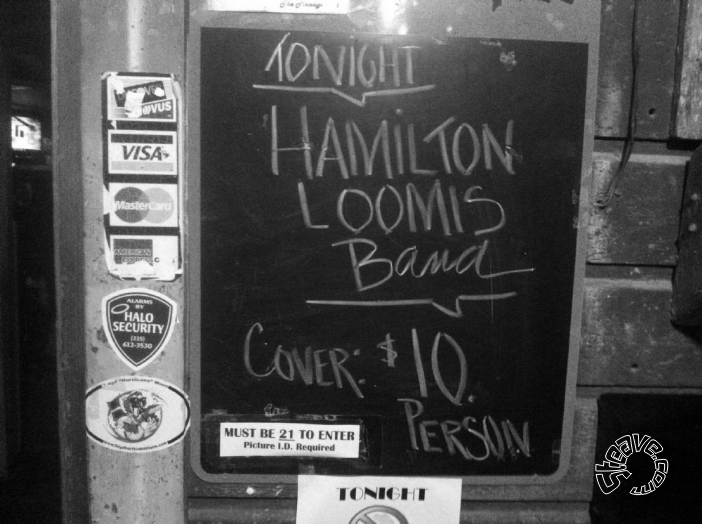 TONIGHT
HAMILTON
LOOMIS
Band
COVER: $10.
PERSON
NOVUS
VISA
MasterCard
AMERICAN
ALARMS
BY
HALO
SECURITY
(225)
612-3530
MUST BE 21 TO ENTER
Picture I.D. Required
TONIGHT
Steave.com